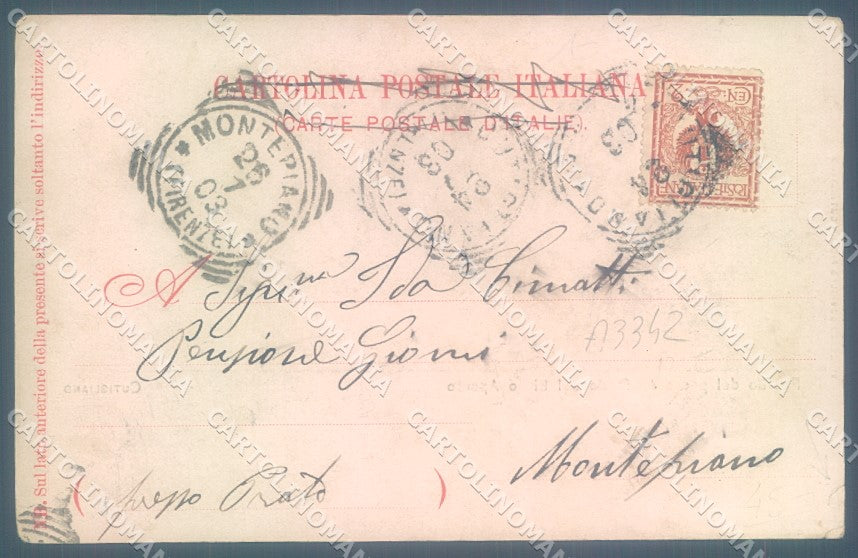 CARTOLINA POSTALE ITALIANA
(CARTE POSTALE D'ITALIE)
NB. Sul lato anteriore della presente si scrive soltanto l'indirizzo
MONTEPIANO
26
7
03
(FIRENZE)
24
7
03
A Sig.na Ida Cimatti
Pensione Giomi
A3342
CUTIGLIANO
Montepiano
(presso Prato)
CARTOLINOMANIA